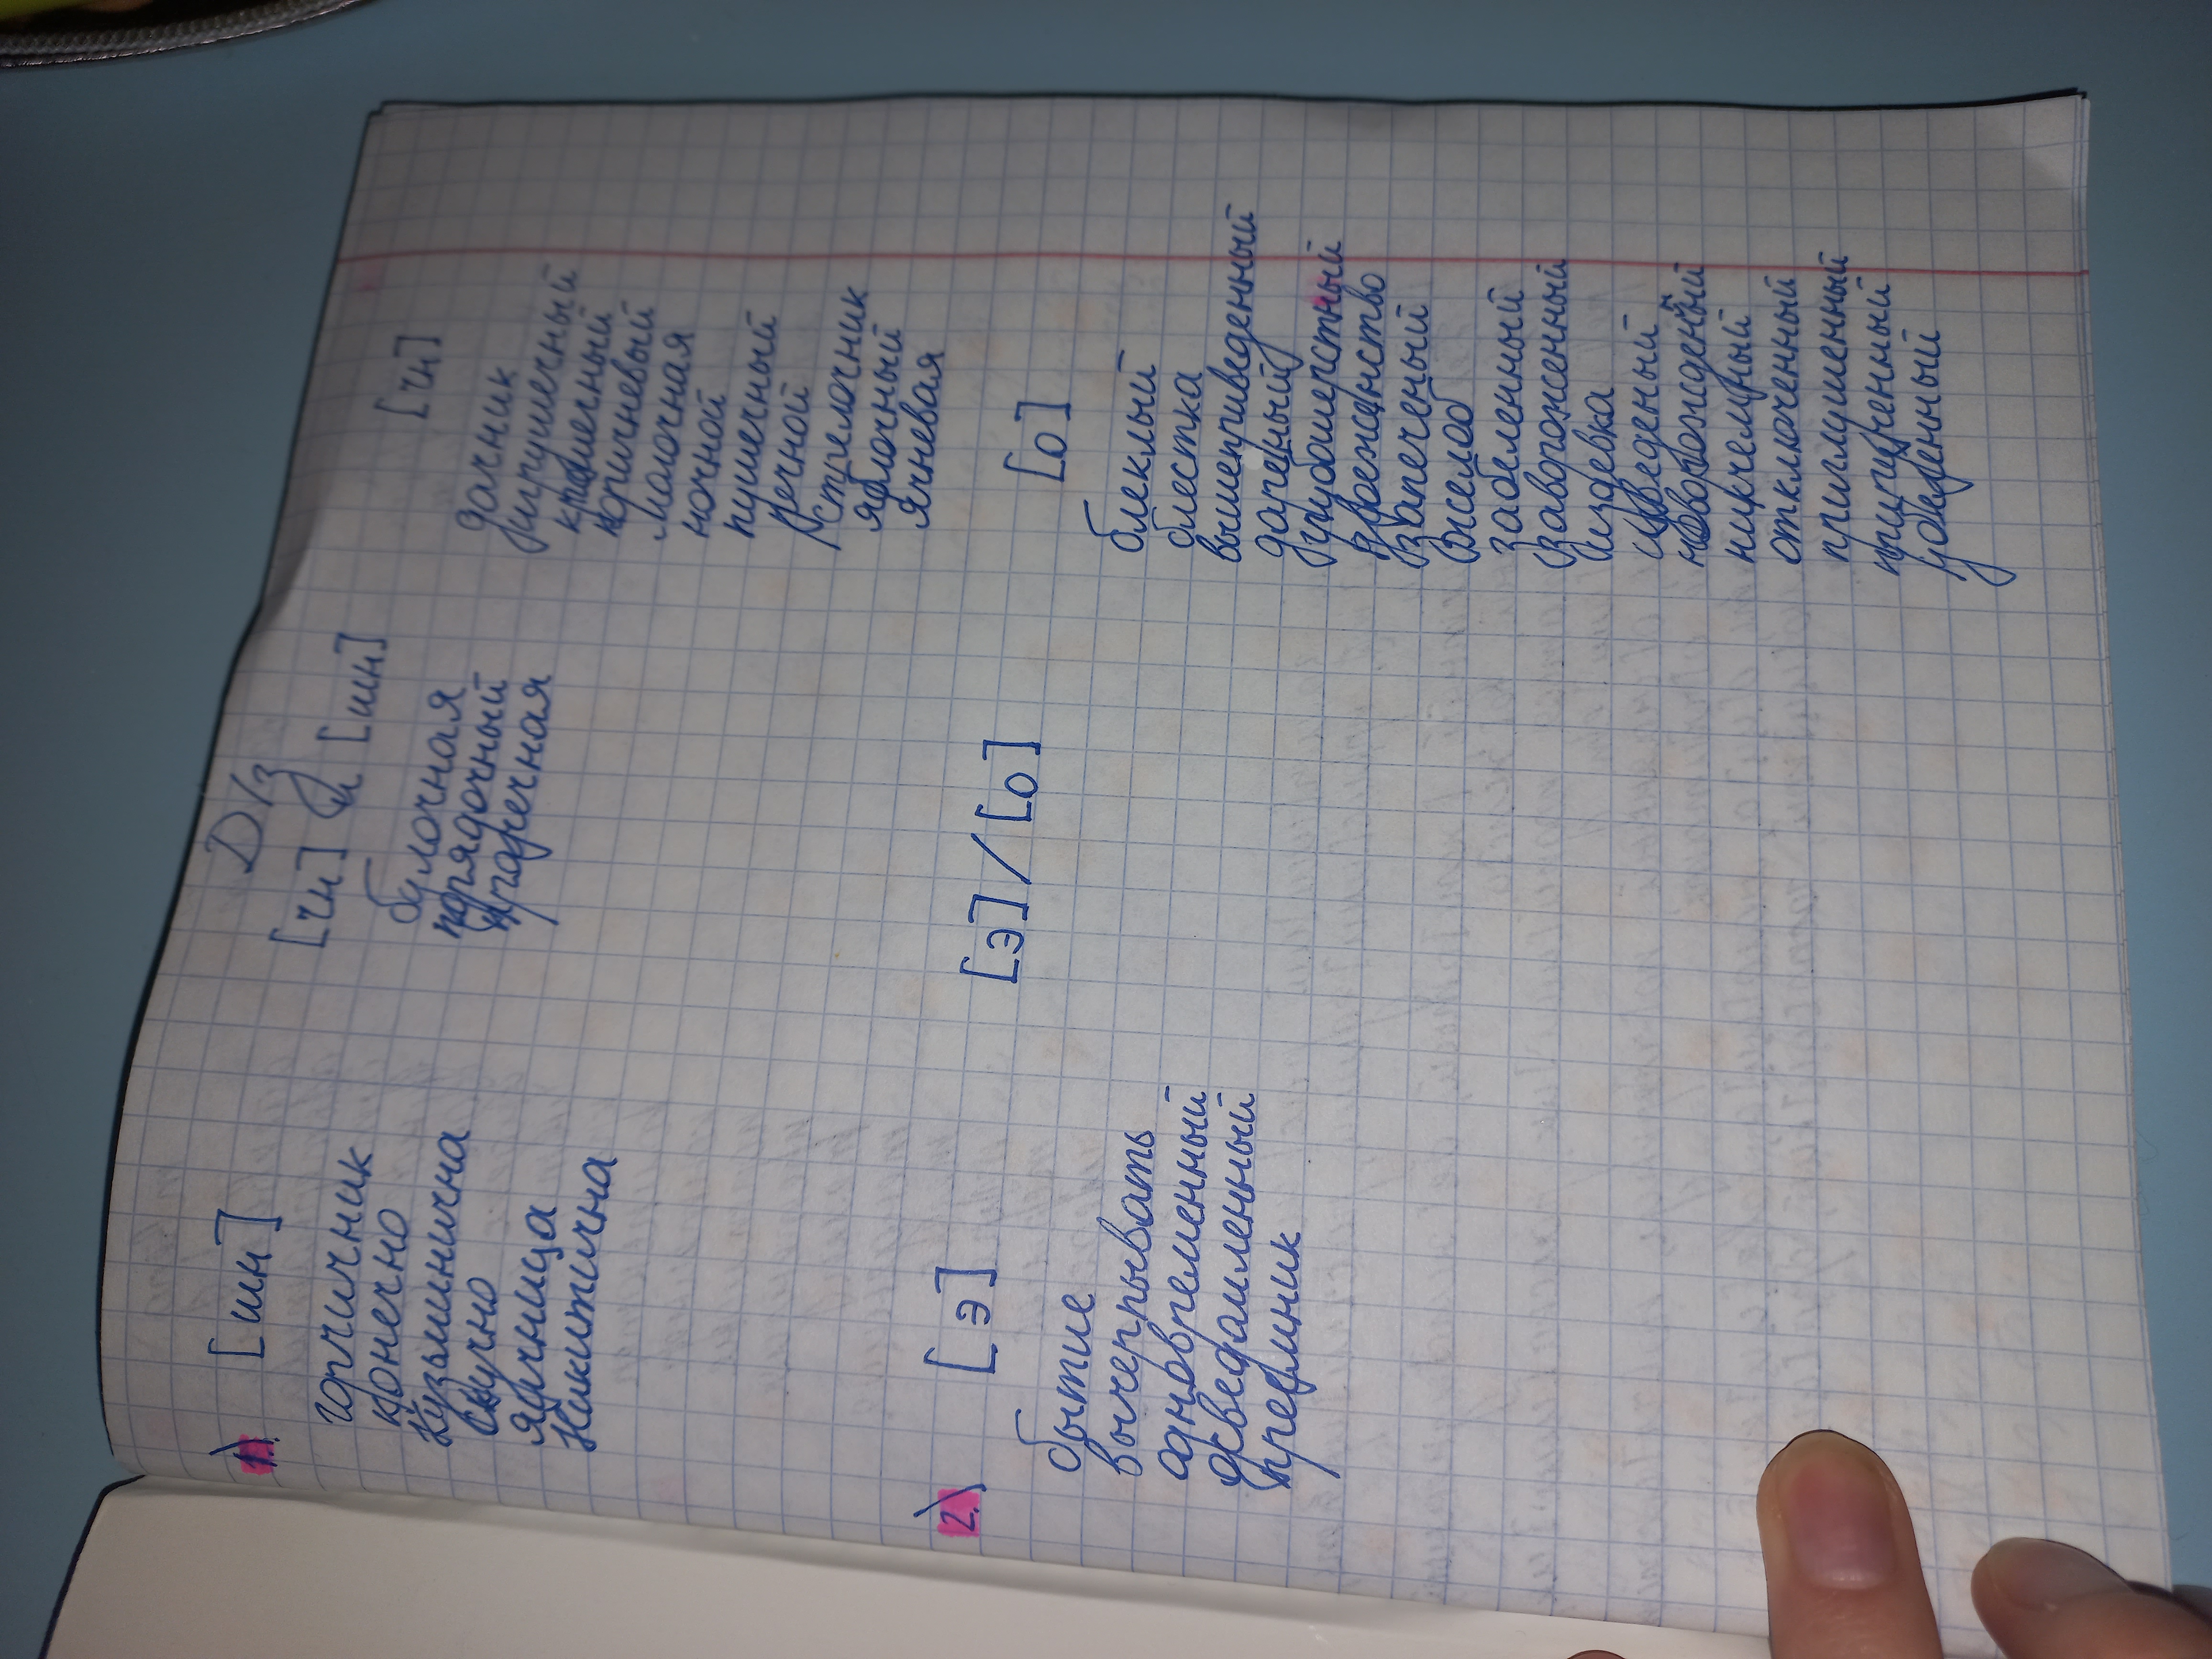 Д/з
1.) [шн]
горчичник
конечно
Кузьминична
скучно
яичница
Никитична
[чн] и [шн]
булочная
порядочный
прачечная
[чн]
дачник
игрушечный
коричневый
молочная
ночной
пушечный
речной
стрелочник
яблочный
ячневая
2.) [э]
бытие
вычерпывать
одновременный
осведомленный
преемник
[э] / [о]
[о]
блеклый
блестка
вышеприведенный
двоеженство
запеченый
забеленный
завороженный
издевка
новорожденый
никчемный
отключенный
приглушенный